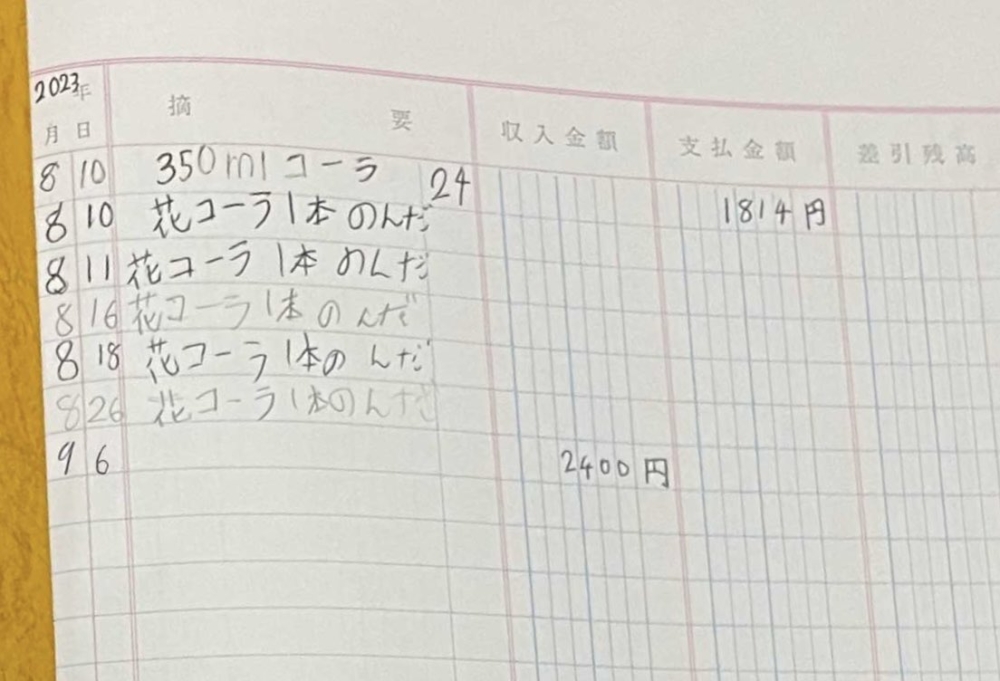 2023年
月 日 摘 要 収入金額 支払金額 差引残高
8 10 350ml コーラ 24 1814円
8 10 花コーラ1本 のんだ
8 11 花コーラ 1本 のんだ
8 16 花コーラ 1本 のんだ
8 18 花コーラ 1本の んだ
8 26 花コーラ1本のんだ
9 6 2400円